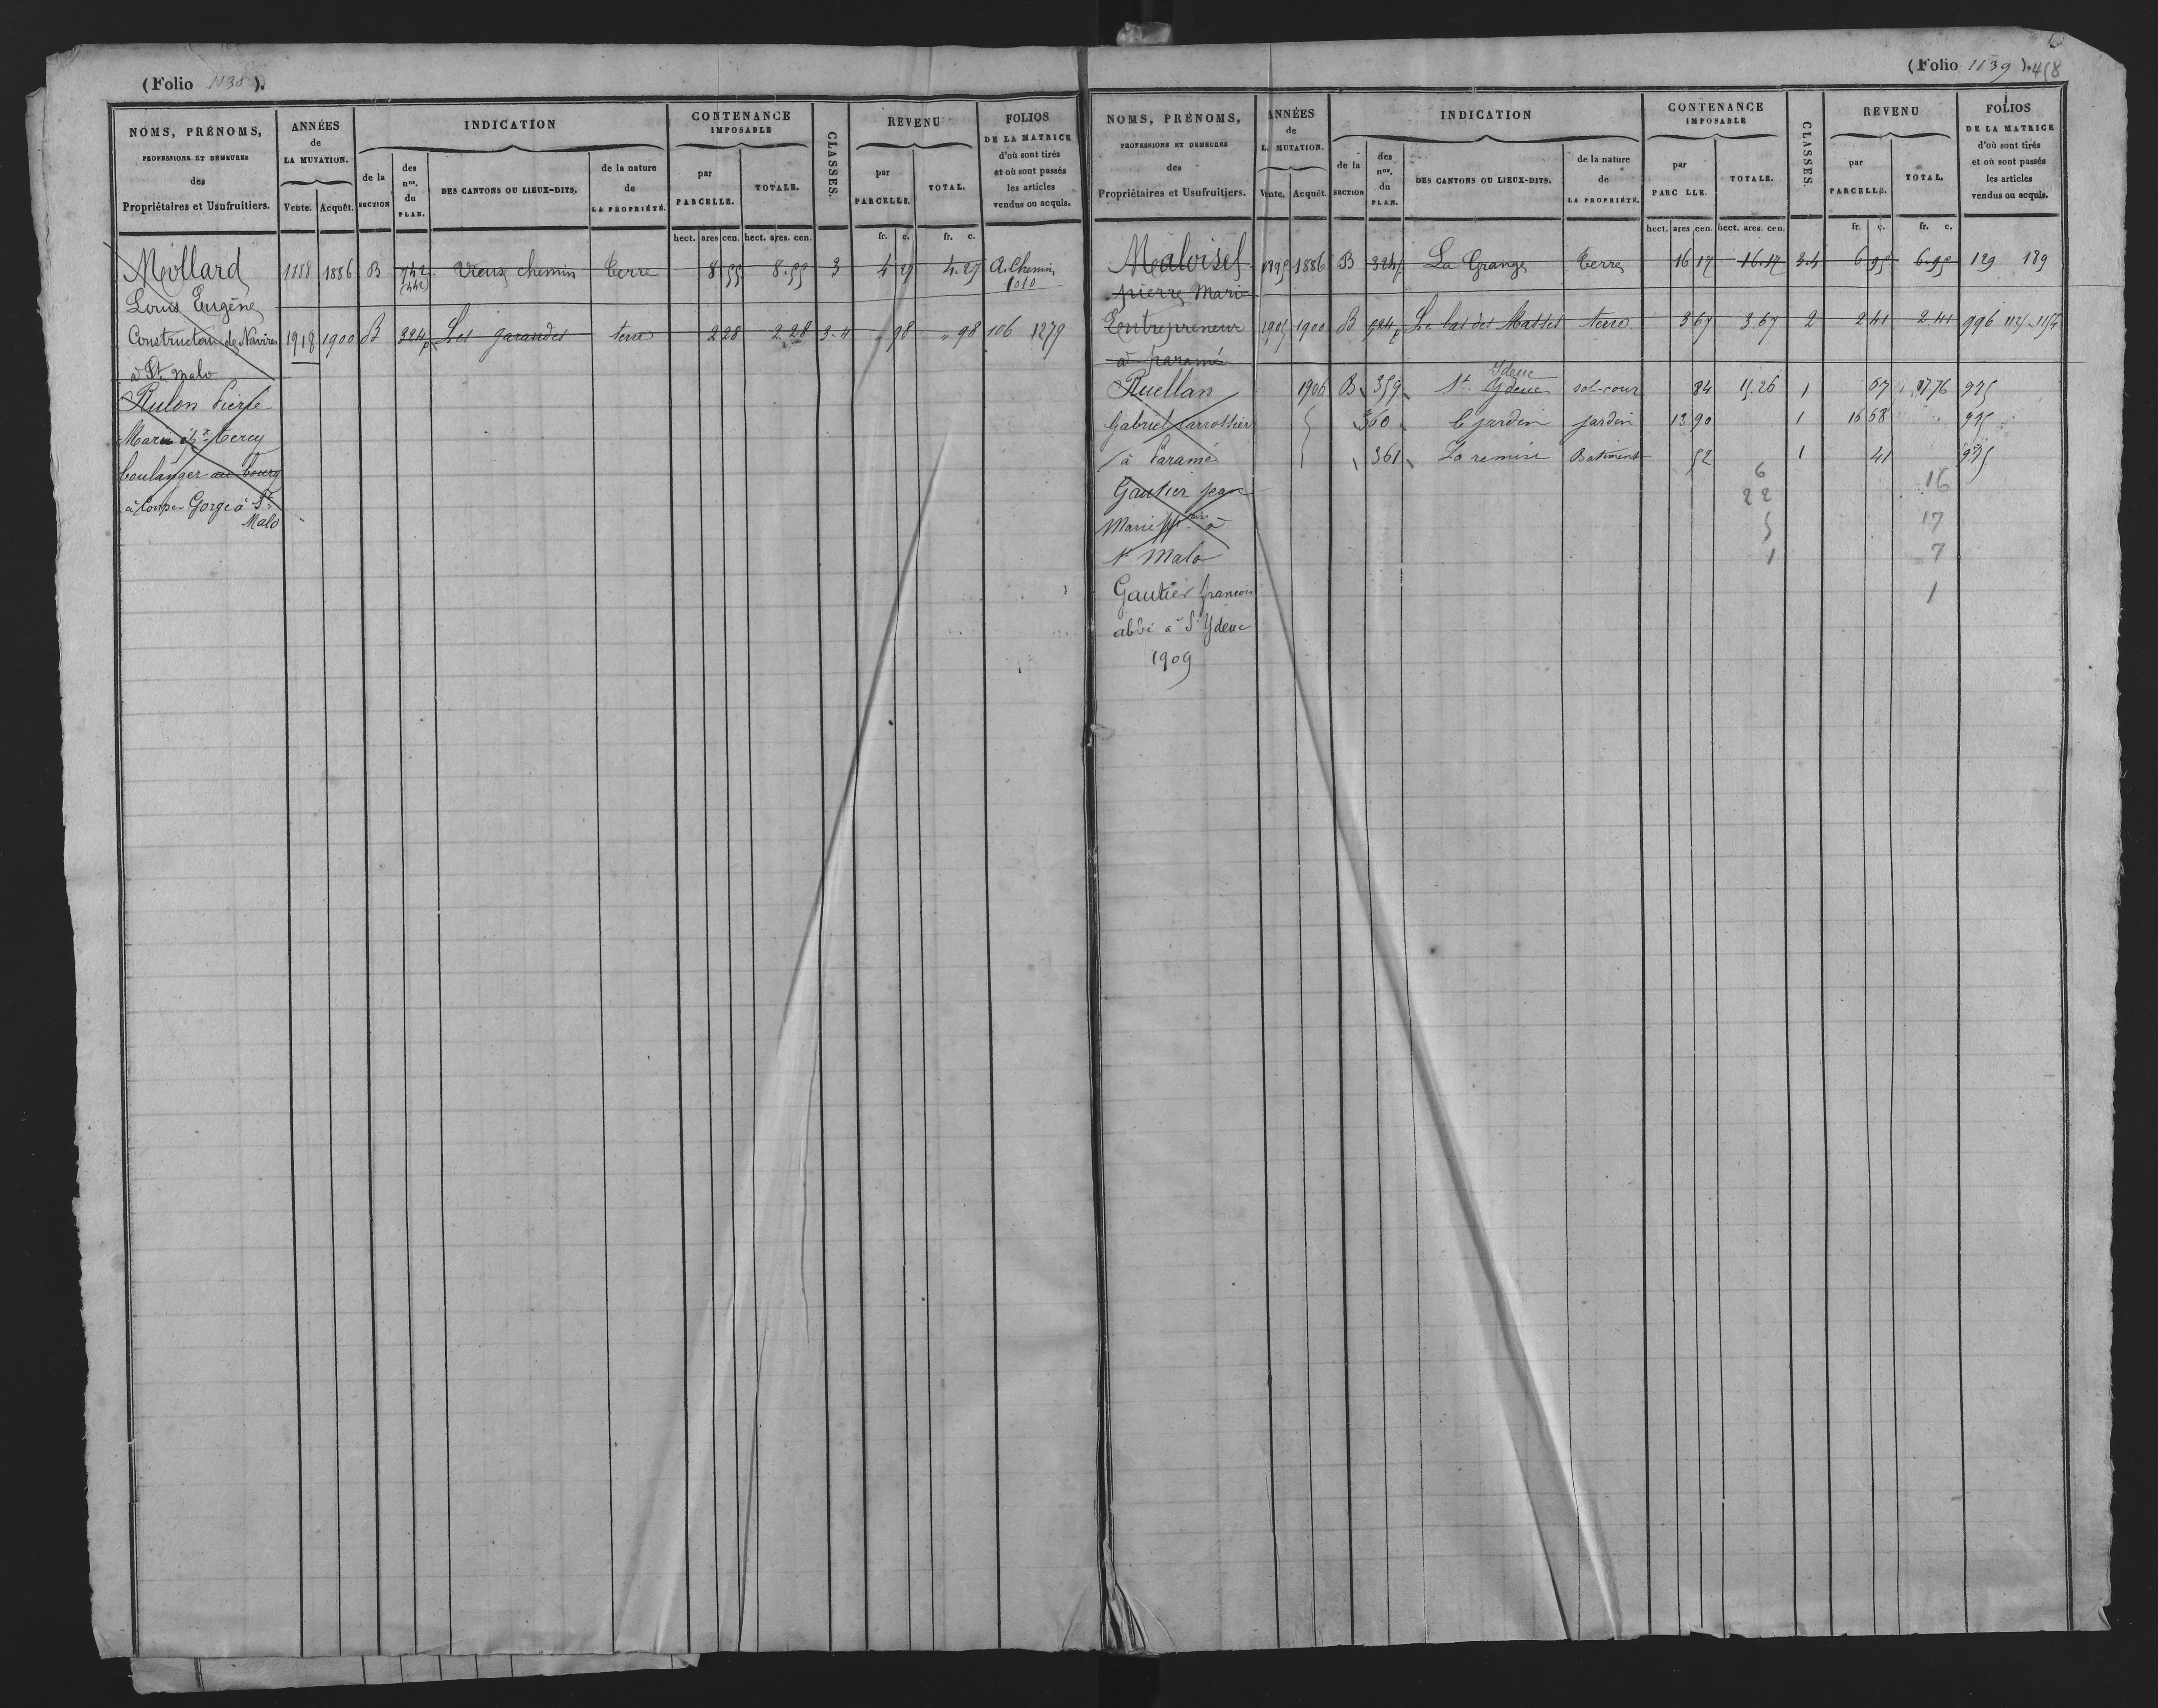 (Folio 1138).
NOMS, PRÉNOMS,
PROFESSIONS ET DEMEURES
des
Propriétaires et Usufruitiers.
ANNÉES
de
LA MUTATION.
Vente. Acquêt.
INDICATION
de la
SECTION
des
nos.
du
PLAN.
DES CANTONS OU LIEUX-DITS.
de la nature
de
LA PROPRIÉTÉ.
CONTENANCE
IMPOSABLE
par
PARCELLE.
TOTALE.
CLASSES.
REVENU
par
PARCELLE.
TOTAL.
FOLIOS
DE LA MATRICE
d'où sont tirés
et où sont passés
les articles
vendus ou acquis.
hect. ares cen. hect. ares. cen. fr. c. fr. c.
Mollard 1886 B 742 Vieux chemin Terre 8 55 8.55 3 4 27 4.27 A. Chemin
1010
Louis Eugène
Constructeur de Navires 1918 1900 B 324p Les garandes terre 2 28 2 28 3-4 " 98 " 98 106 1279
à St malo
Rulon Pierre
Marie
boulanger au bourg
à Coupe Gorge à St
Malo
(Folio 1139). 418
NOMS, PRÉNOMS,
PROFESSIONS ET DEMEURES
des
Propriétaires et Usufruitiers.
ANNÉES
de
L MUTATION.
Vente. Acquêt.
INDICATION
de la
SECTION
des
nos.
du
PLAN.
DES CANTONS OU LIEUX-DITS.
de la nature
de
LA PROPRIÉTÉ.
CONTENANCE
IMPOSABLE
par
PARC LLE.
TOTALE.
CLASSES.
REVENU
par
PARCELLE.
TOTAL.
FOLIOS
DE LA MATRICE
d'où sont tirés
et où sont passés
les articles
vendus ou acquis.
hect. ares cen. hect. ares. cen. fr. c. fr. c.
Maloisel 1895 1886 B La Grange Terre 16 17 16.17 3.4 6 95 6.95 129 189
pierre Marie
Entrepreneur 1905 1900 B Le bas des Masses terre 3 67 3 67 2 2 41 2 41 996
à paramé
Ydeuc
Ruellan 1906 B 359 St Ydeuc sol-cour 84 15.26 1 67 17.76 925
Gabriel carrossier 360 le jardin jardin 13 90 1 16 68 925
à Paramé 361 La remise Batiment 52 1 41 925
6
Gautier jean 22 16
Marie à 5 17
St Malo 1 7
Gautier francois 1
abbé à St Ydeuc
1909